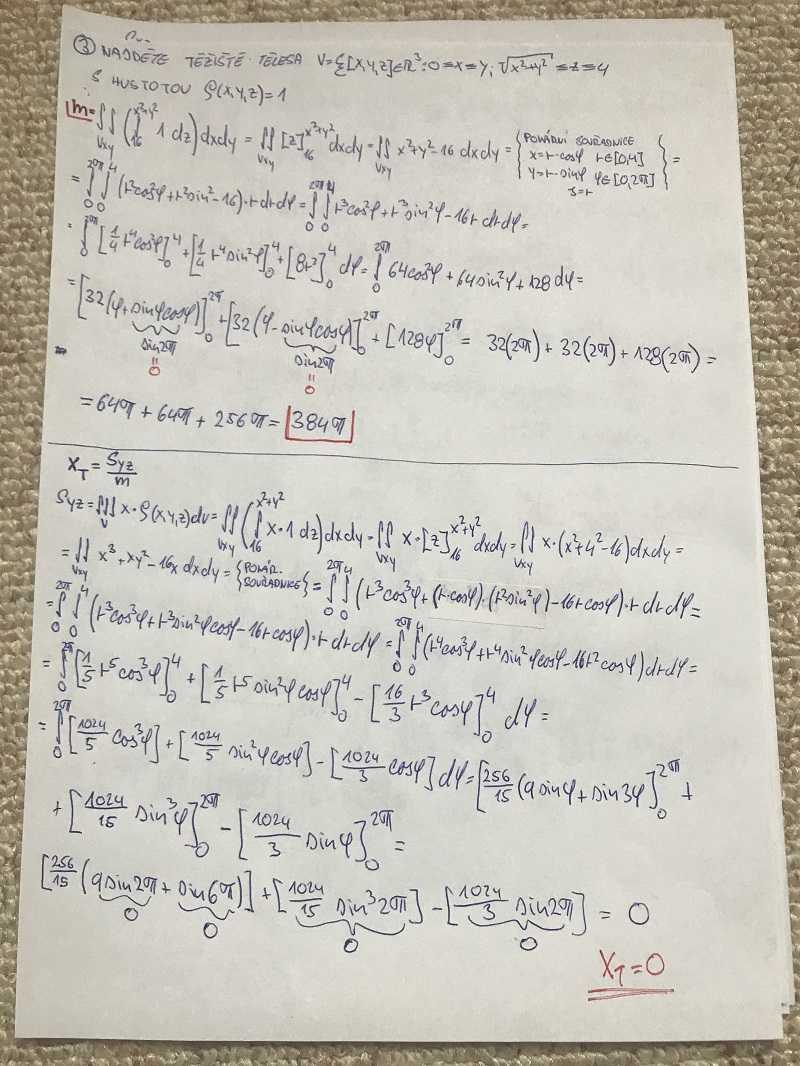 ③ NAJDĚTE TĚŽIŠTĚ TĚLESA V={[X,Y,Z]∈ℝ³: 0≤x≤y; √(x²+y²) ≤ z ≤ 4
S HUSTOTOU ρ(X,Y,Z)=1
m = ∬_Vxy (∫_16^{x²+y²} 1 dz) dxdy = ∬_Vxy [z]_16^{x²+y²} dxdy = ∬_Vxy x²+y²-16 dxdy = {POLÁRNÍ SOUŘADNICE x=r·cosφ r∈[0,4] y=r·sinφ φ∈[0,2π] J=r} =
= ∫_0^{2π} ∫_0^4 (r²cos²φ+r²sin²-16)·r dr dφ = ∫_0^{2π} ∫_0^4 r³cos²φ+r³sin²φ-16r dr dφ =
= ∫_0^{2π} [1/4 r⁴cos²φ]_0^4 + [1/4 r⁴sin²φ]_0^4 + [8r²]_0^4 dφ = ∫_0^{2π} 64cos²φ + 64sin²φ + 128 dφ =
= [32(φ+sinφcosφ)]_0^{2π} + [32(φ-sinφcosφ)]_0^{2π} + [128φ]_0^{2π} = 32(2π) + 32(2π) + 128(2π) =
sin2π sin2π
= =
0 0
= 64π + 64π + 256π = 384π
X_T = S_yz/m
S_yz = ∭_V x·ρ(x,y,z)dv = ∬_Vxy (∫_16^{x²+y²} x·1 dz) dxdy = ∬_Vxy x·[z]_16^{x²+y²} dxdy = ∬_Vxy x·(x²+y²-16)dxdy =
= ∬_Vxy x³+xy²-16x dxdy = {POLÁR. SOUŘADNICE} = ∫_0^{2π} ∫_0^4 (r³cos³φ+(r·cosφ)·(r²sin²φ)-16rcosφ)·r dr dφ =
= ∫_0^{2π} ∫_0^4 (r³cos³φ+r³sin²φcosφ-16rcosφ)·r dr dφ = ∫_0^{2π} ∫_0^4 (r⁴cos³φ+r⁴sin²φcosφ-16r²cosφ)drdφ =
= ∫_0^{2π} [1/5 r⁵cos³φ]_0^4 + [1/5 r⁵sin²φcosφ]_0^4 - [16/3 r³cosφ]_0^4 dφ =
= ∫_0^{2π} [1024/5 cos³φ] + [1024/5 sin²φcosφ] - [1024/3 cosφ] dφ = [256/15 (9sinφ+sin3φ)]_0^{2π} +
+ [1024/15 sin³φ]_0^{2π} - [1024/3 sinφ]_0^{2π} =
[256/15 (9sin2π + sin6π)] + [1024/15 sin³2π] - [1024/3 sin2π] = 0
0 0 0 0
X_T=0